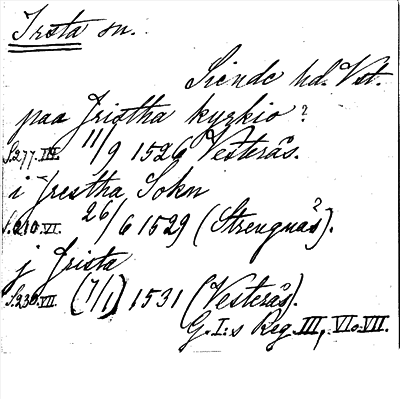 Irsta sn.
Siende hd. Vst.
paa Jristha kyrkio?
S.277.III. 11/9 1526 Vesterås.
i Jrestha Sokn
S.210.VI. 26/6 1529 (Strengnäs?).
j Jrista
S.230.VII. (7/1) 1531 (Vesterås).
G.I:s Reg. III, VI o. VII.